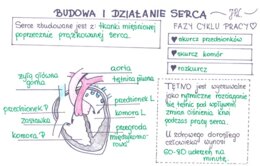 BUDOWA I DZIAŁANIE SERCA
Serce zbudowane jest z: tkanki mięśniowej
poprzecznie prążkowanej serca.
FAZY CYKLU PRACY
skurcz przedsionków
skurcz komór
rozkurcz
żyła główna
górna
aorta
tętnica płucna
przedsionek P.
zastawka
komora P.
przedsionek L.
komora L.
przegroda
międzykomo-
rowa
TĘTNO jest wyczuwalne
jako rytmiczne rozciąganie
się tętnic pod wpływem
zmian ciśnienia, krwi
podczas pracy serca.
U zdrowego dorosłego
człowieka wynosi
60-80 uderzeń na
minutę.